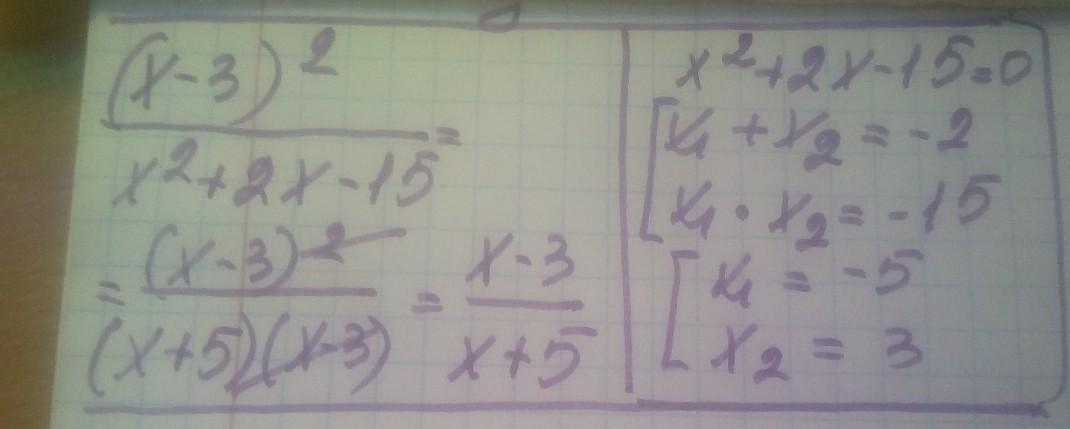 (x-3)²
/
x²+2x-15 =
= (x-3)² / (x+5)(x-3) = x-3 / x+5
x²+2x-15=0
[x₁ + x₂ = -2
x₁ · x₂ = -15
[x₁ = -5
x₂ = 3